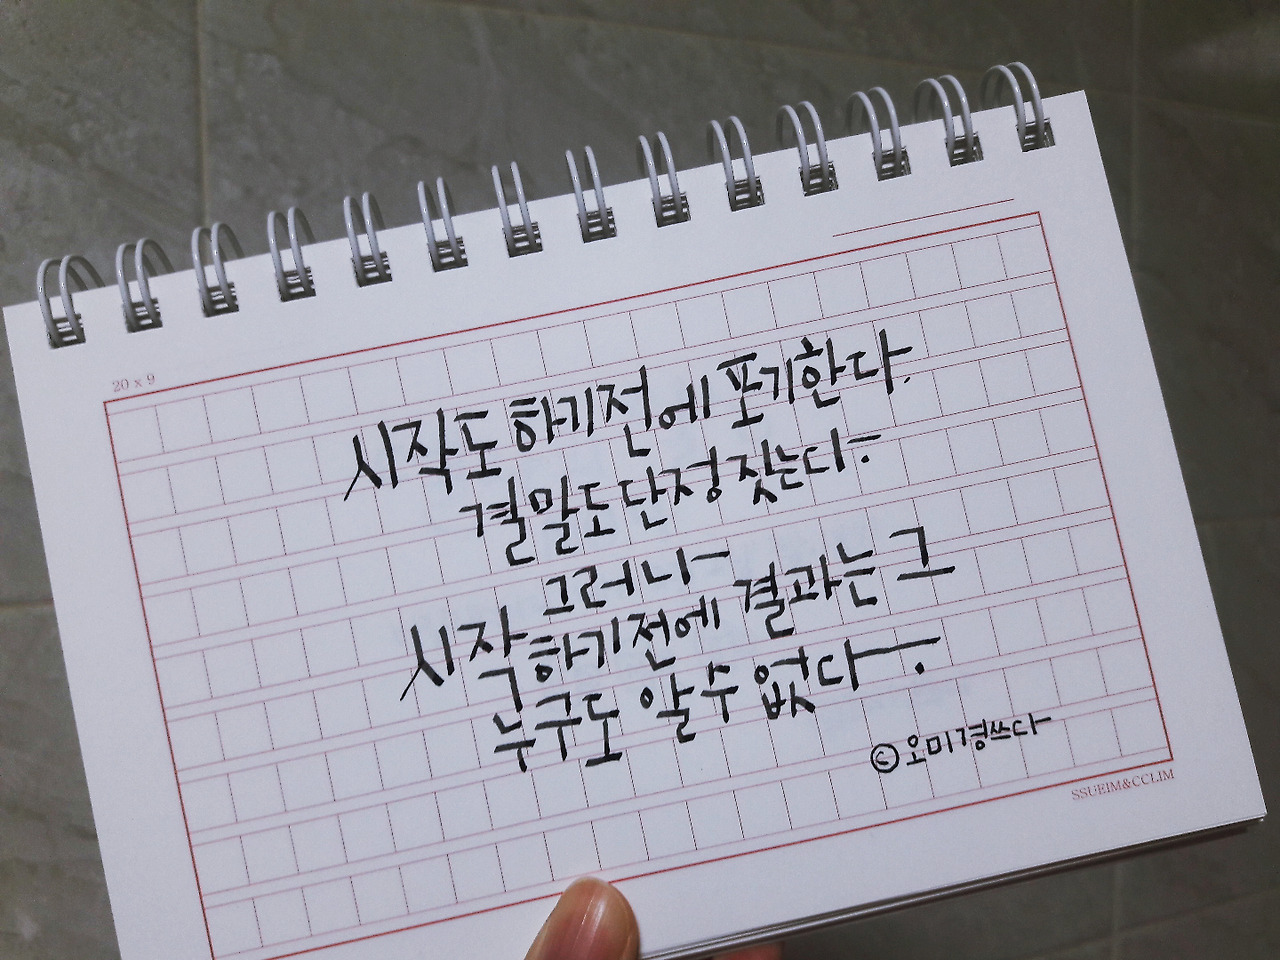 20 x 9
시작도 하기전에 포기한다.
결말도 단정 짓는다.
그러나
시작 하기전에 결과는 그
누구도 알 수 없다.
ⓒ오미경쓰다
SSUEIM&CCLIM